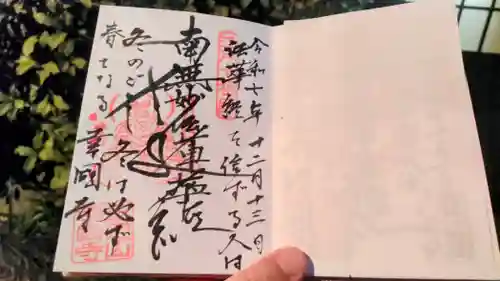 令和七年 十二月十三日
法華経を信ずる人は
南無妙法蓮華経
冬のごとし 冬は必ず
春となる 幸國寺